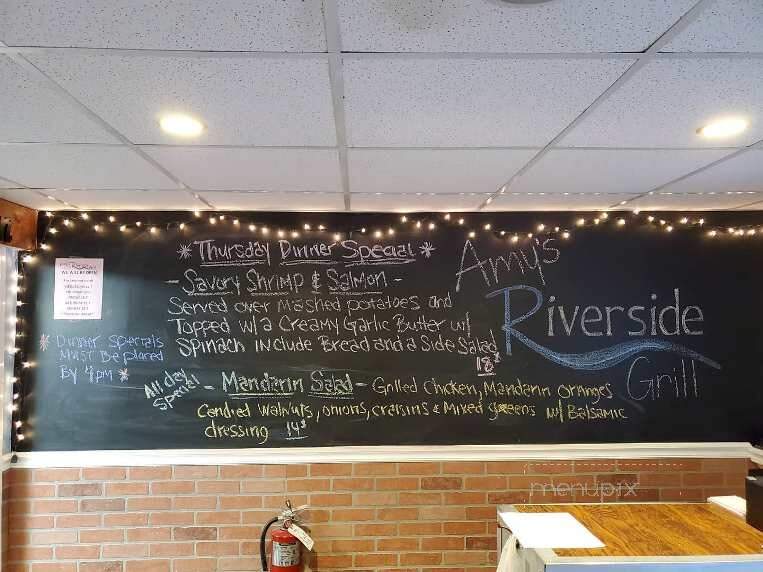 * Thursday Dinner Special *
- Savory Shrimp & Salmon -
Served over mashed potatoes and
Topped w/ a Creamy Garlic Butter w/
Spinach include Bread and a Side Salad
18$
* Dinner Specials
Must Be placed
By 4pm *
All day
Special
- Mandarin Salad - Grilled Chicken, Mandarin oranges
Candied Walnuts, onions, craisins & Mixed greens w/ Balsamic
dressing 14$
Amy's
Riverside
Grill
menupix